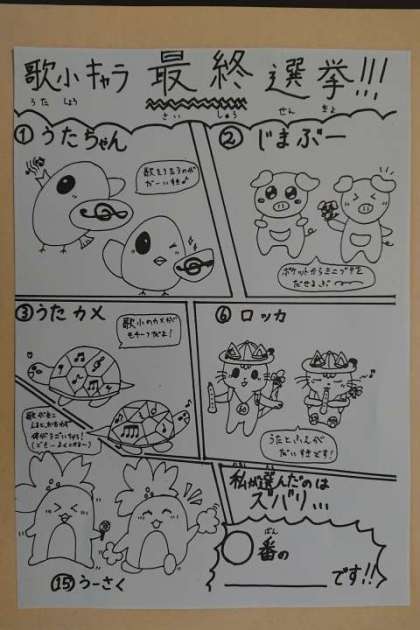 歌小キャラ 最終選挙!!!
うた しょう さい しゅう せん きょ
① うたちゃん
歌をうたうのが
だーいすき♪
② じまぶー
ポケットからミニブタを
だせるぶ〜
③ うたカメ
歌小のカメが
モチーフだよ!
⑥ ロッカ
うたとふえが
だいすきです!
⑮ うーさく
私が選んだのは
ズバリ...
○番の
ばん
です!!